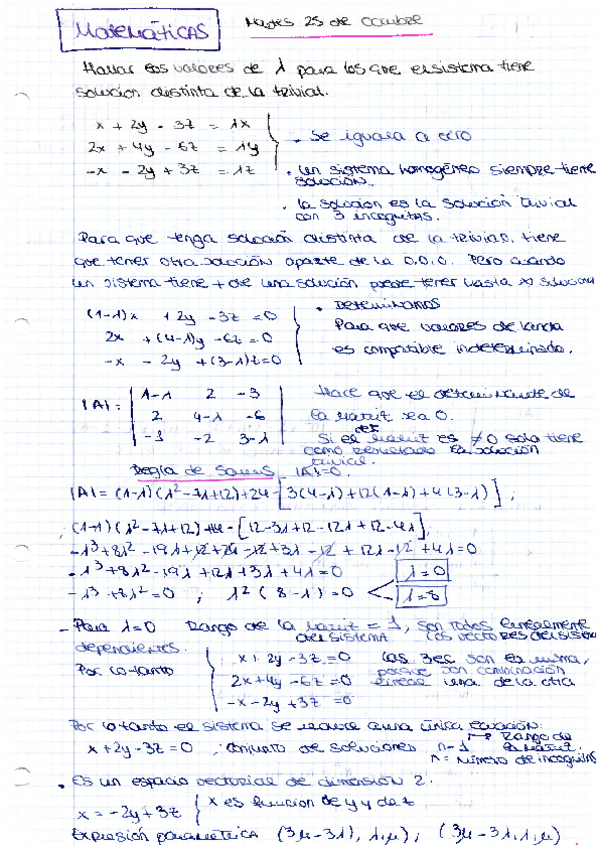 Matemáticas
Martes 25 de Octubre
Hallar los valores de λ para los que el sistema tiene
solución distinta de la trivial.
x + 2y - 3z = λx
2x + 4y - 6z = λy
-x - 2y + 3z = λz
. Se iguala a cero
. Un sistema homogéneo siempre tiene
solución.
. la solución es la solución trivial
con 3 incognitas.
Para que tenga solución distinta de la trivial, tiene
que tener otra solución aparte de la 0,0,0. Pero cuando
un sistema tiene + de una solución puede tener hasta ∞
(1-λ)x + 2y - 3z = 0
2x + (4-λ)y - 6z = 0
-x - 2y + (3-λ)z = 0
. Determinantes
Para que valores de
es compatible indeterminado.
|A| = | 1-λ 2 -3 |
| 2 4-λ -6 |
| -1 -2 3-λ |
Hace que el determinante de
la matriz sea 0.
Si el det matriz es ≠ 0 solo tiene
como resultado la solución
trivial.
Regla de Sarrus |A|=0
|A| = (1-λ)(λ²-7λ+12)+24-[3(4-λ)+12(1-λ)+4(3-λ)] ;
(1-λ)(λ²-7λ+12)+24-[12-3λ+12-12λ+12-4λ]
-λ³+8λ²-19λ+12+24-12+3λ-12+12λ-12+4λ=0
-λ³+8λ²-19λ+12λ+3λ+4λ=0
-λ³+8λ²=0 ; λ²(8-λ)=0
λ=0
λ=8
- Para λ=0 Rango de la matriz = 1, son todos linealmente
del sistema los vectores del sistema
dependientes.
Por lo tanto
x + 2y - 3z = 0
2x + 4y - 6z = 0
-x - 2y + 3z = 0
las 3 ec son la misma,
porque son combinación
lineal una de la otra
Por lo tanto el sistema se reduce a una única ecuación:
x + 2y - 3z = 0 , conjunto de soluciones n-1 → Rango de
la matriz.
n = número de incognitas
. Es un espacio vectorial de dimensión 2.
x = -2y + 3z { x es función de y y de z
Expresión paramétrica (3μ-3λ), λ, μ) ; (3μ-3λ, λ, μ)